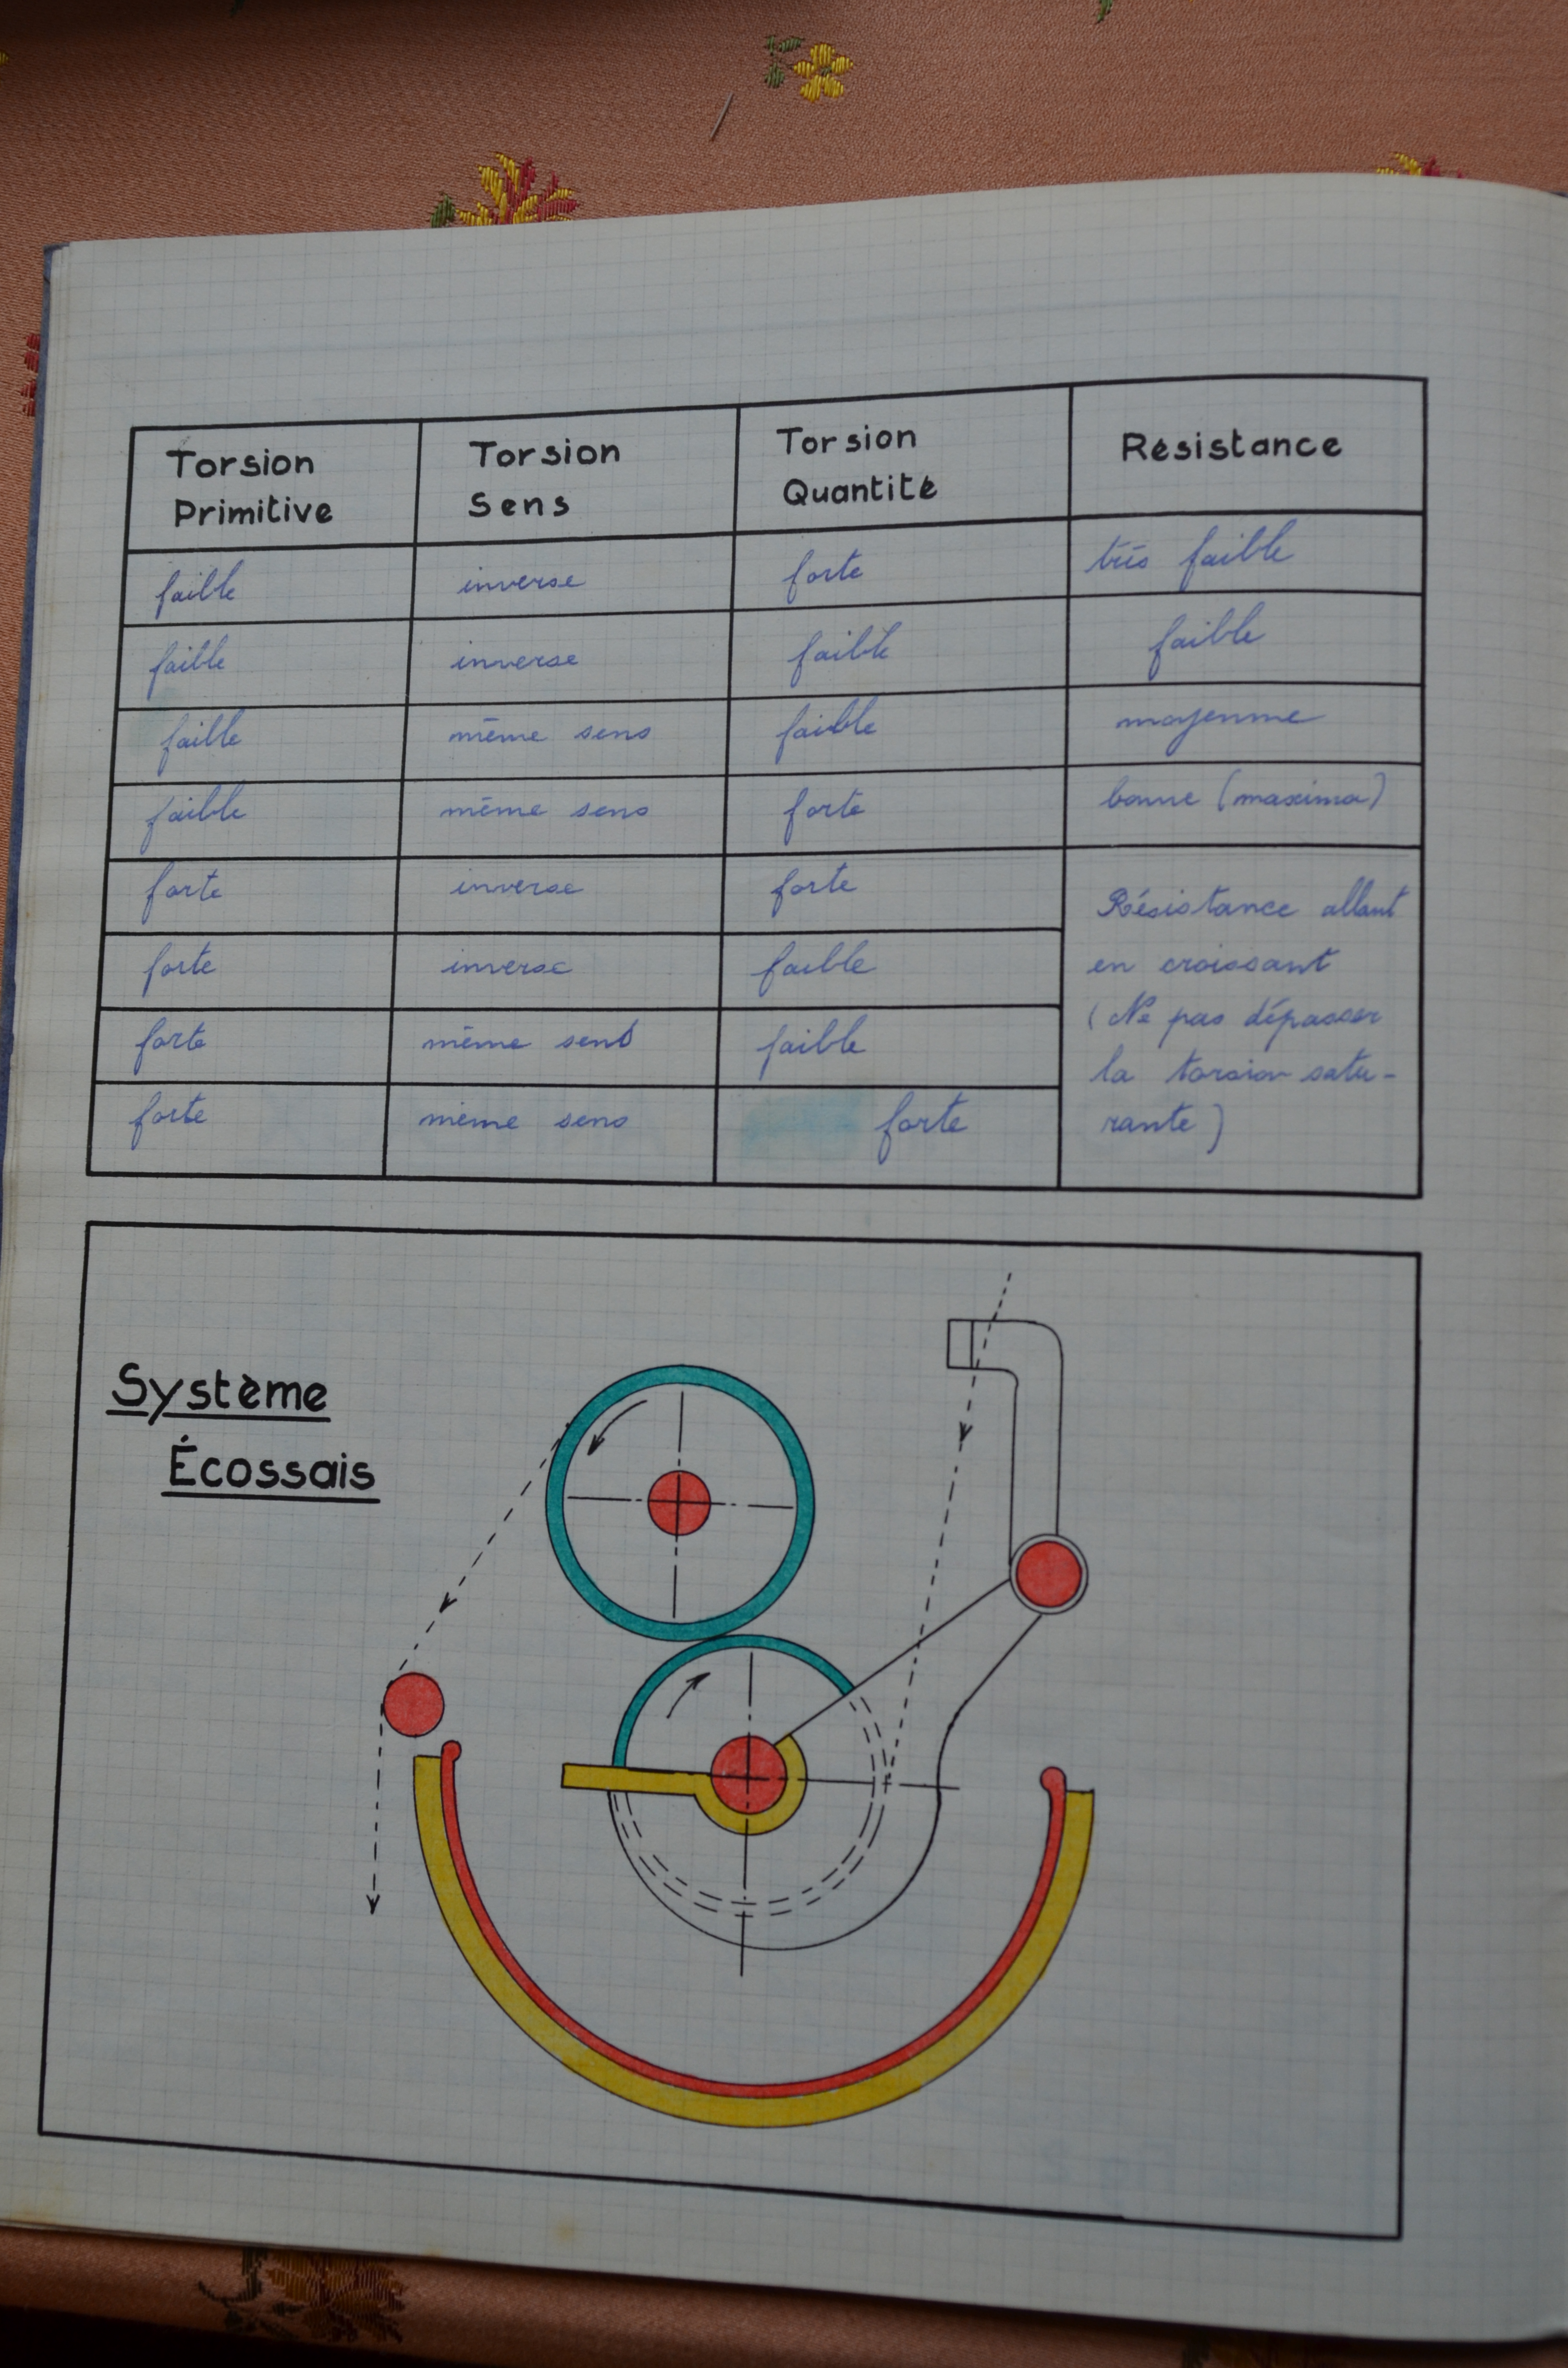 Torsion Primitive Torsion Sens Torsion Quantité Résistance
faible inverse forte très faible
faible inverse faible faible
faible même sens faible moyenne
faible même sens forte bonne (maxima)
forte inverse forte
forte inverse faible
forte même sens faible
forte même sens forte
Résistance allant
en croissant
(Ne pas dépasser
la torsion satu-
rante)
Système
Écossais